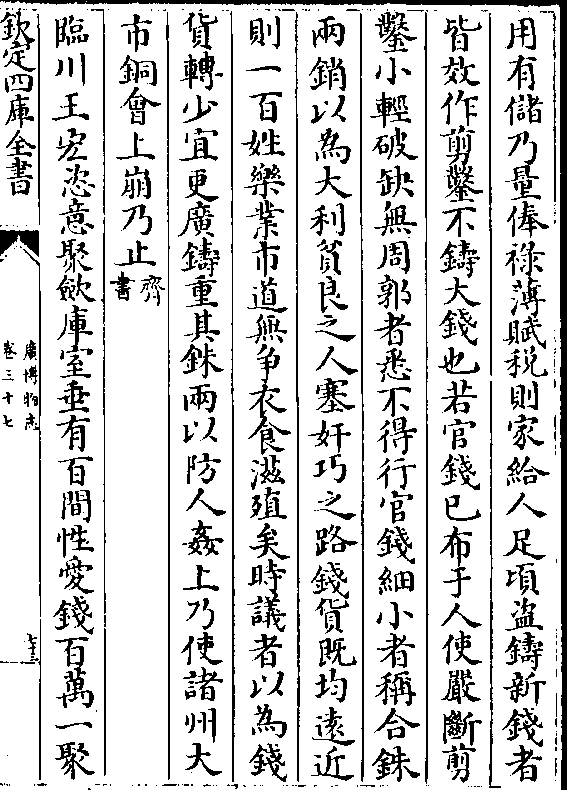 用有儲乃量俸祿薄賦稅則家給人足頃盗鑄新錢者
皆效作剪鑿不鑄大錢也若官錢已布于人使嚴斷剪
鑿小輕破缺無周郭者悉不得行官錢細小者稱合銖
兩銷以為大利貧良之人塞奸巧之路錢貨既均逺近
則一百姓樂業市道無争衣食滋殖矣時議者以為錢
貨轉少宜更廣鑄重其銖兩以防人姦上乃使諸州大
市銅會上崩乃止齊書
臨川王宏恣意聚斂庫室垂有百間性愛錢百萬一聚
欽定四庫全書
廣博物志
卷三十七